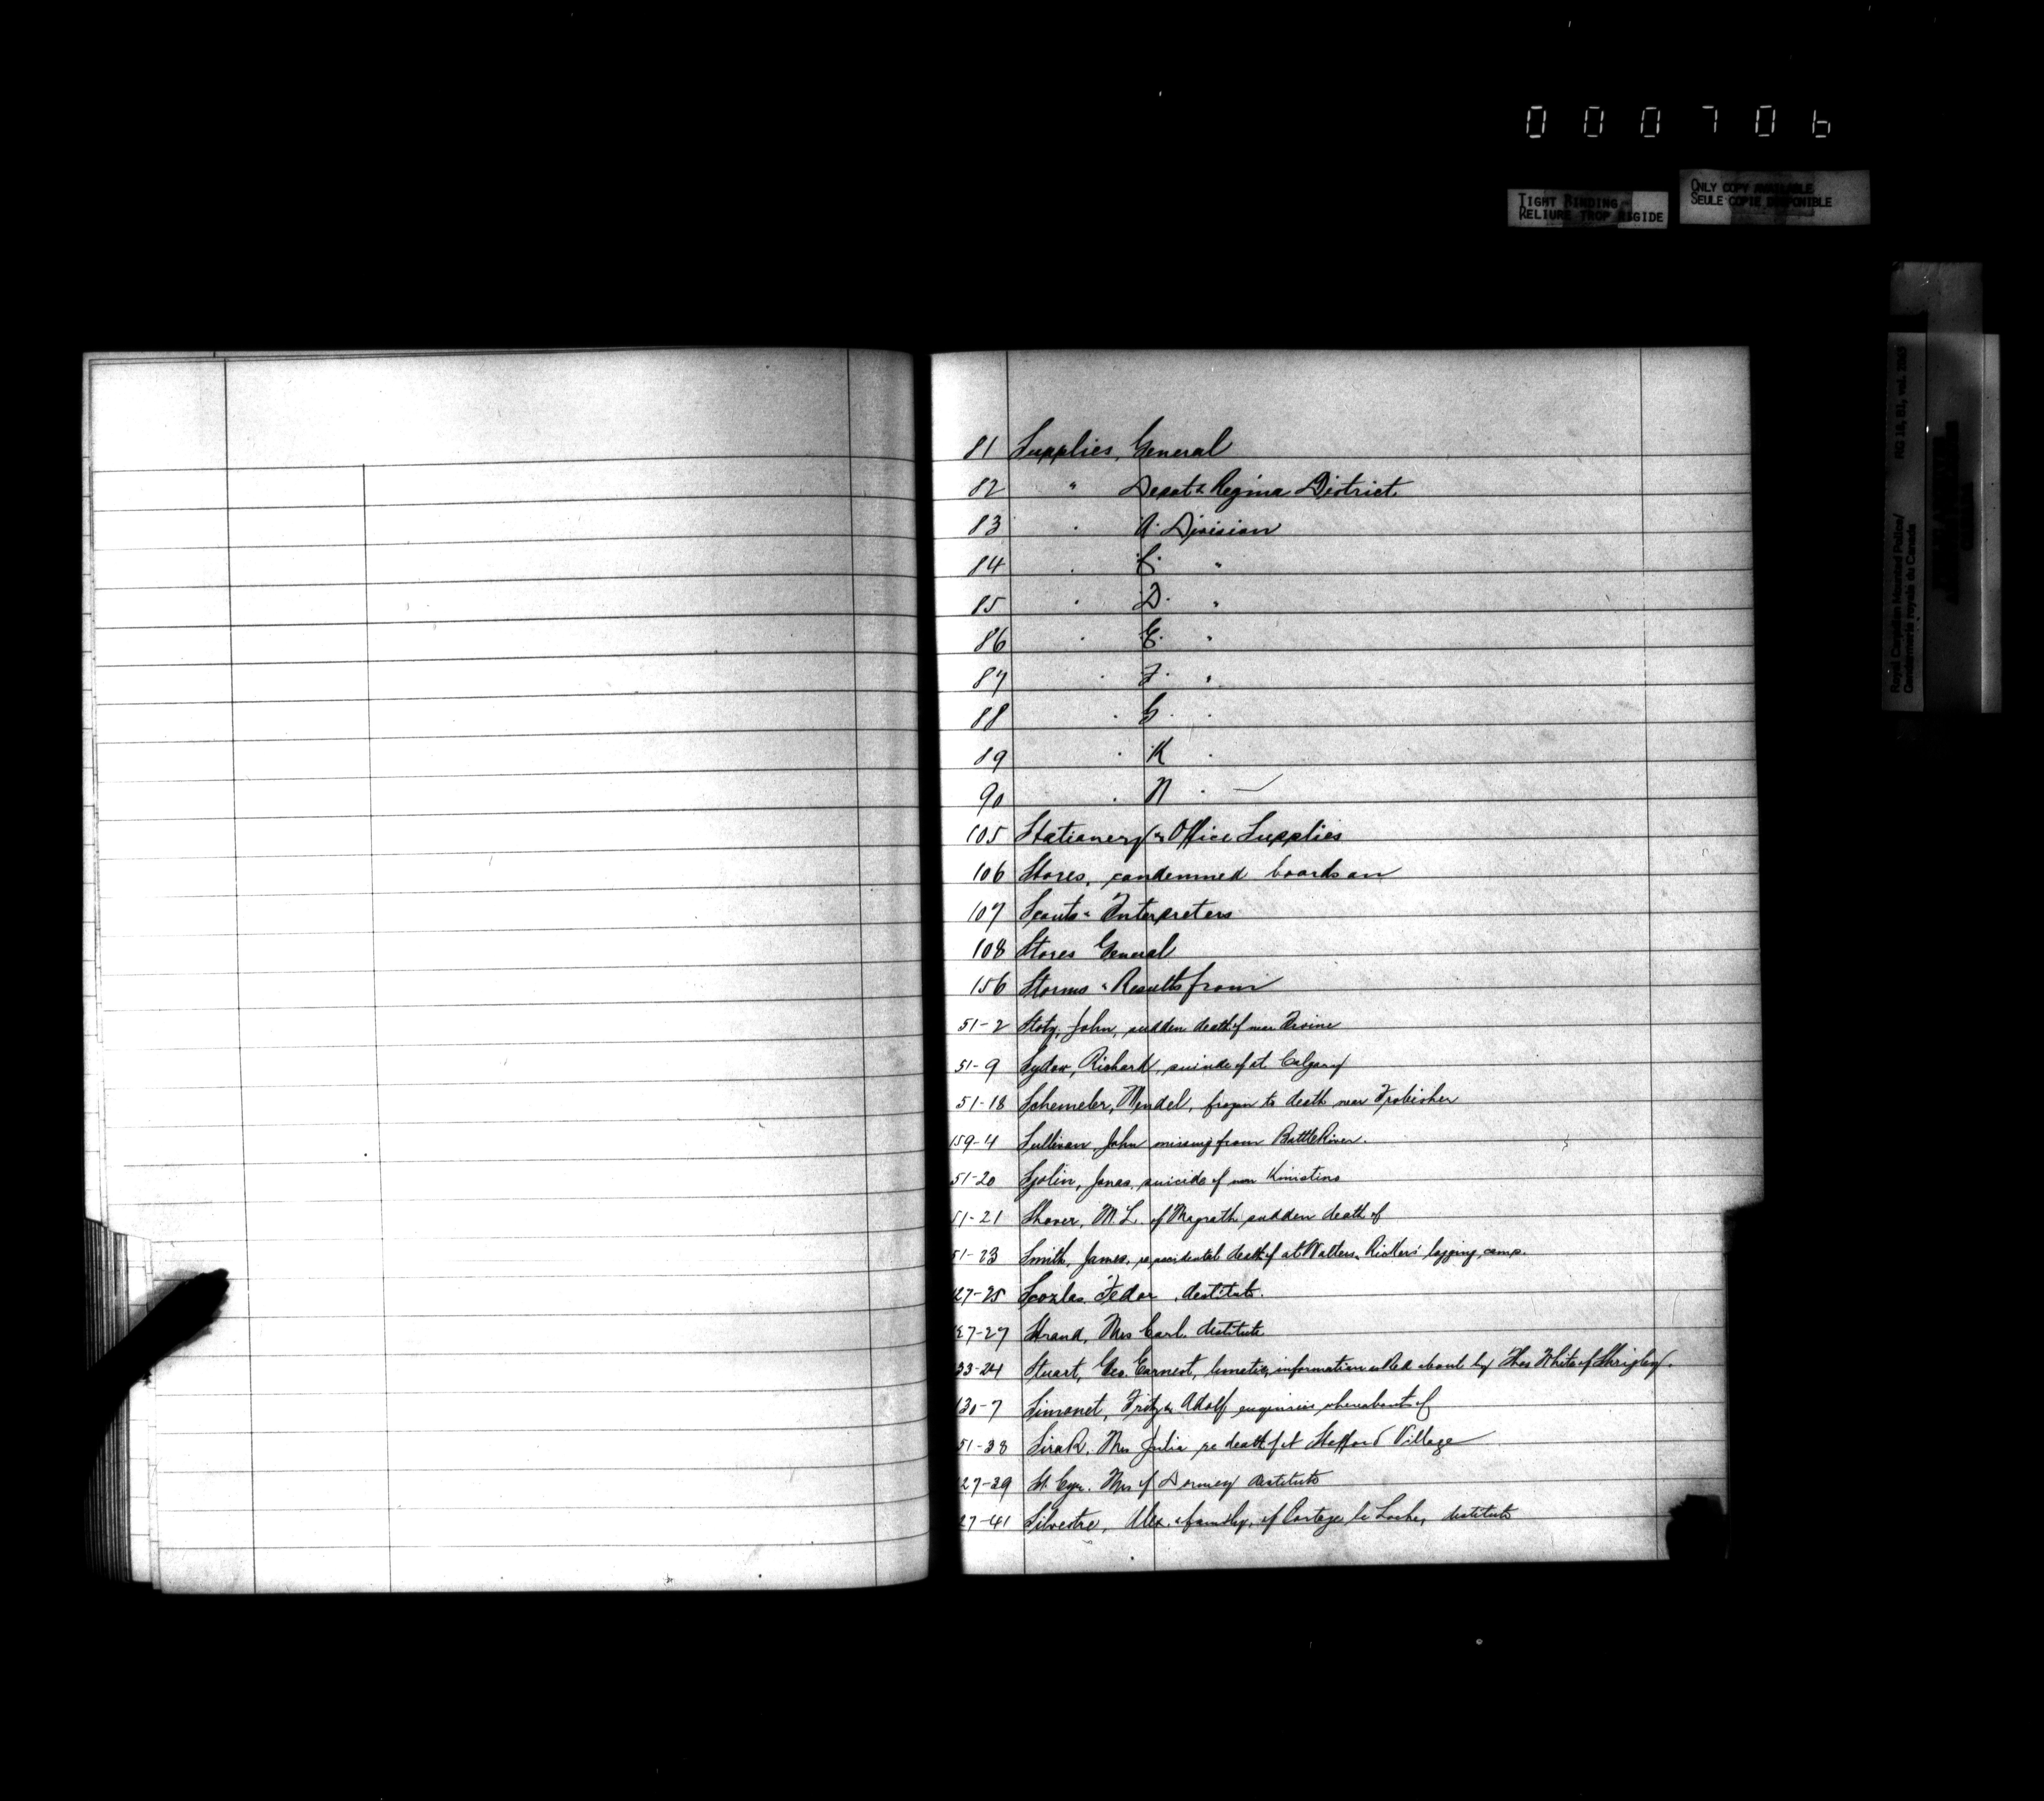 000706
TIGHT BINDING
RELIURE TROP RIGIDE
ONLY COPY AVAILABLE
SEULE COPIE DISPONIBLE
Royal Canadian Mounted Police/
Gendarmerie royale du Canada
RG 18, B1, vol.
81 Supplies, General
82 " Depot & Regina District
83 " A. Division
84 " C. "
85 " D. "
86 " E. "
87 " F. "
88 " G. "
89 " K "
90 " N "
105 Stationery & Office Supplies
106 Stores, condemned boards on
107 Scouts & Interpreters
108 Stores General
156 Storms & Results from
51-2 Stotz, John, sudden death of near Irvine
51-9 Sydow, Richard, suicide of at Calgary
51-18 Schemeler, Wendel, frozen to death near Frobisher
159-4 Sullivan John missing from Battle River.
51-20 Sjolin, Jonas, suicide of near Kinistino
51-21 Shaver, M. L. of Magrath sudden death of
51-23 Smith, James, re accidental death of at Walters logging camp.
127-25 Fedor, destitute.
127-27 Strand, Mrs Carl. destitute
33-24 Stuart, Geo. Earnest, lunatic, information asked about by Thos White of Shrigley.
130-7 Simonet, Fritz & Adolf enquiries whereabouts of
51-38 Mrs Julia re death of at Village
127-39 St. Cyr. Mrs of destitute
127-41 Silvestre, Alex. & family, of Portage la Loche, destitute